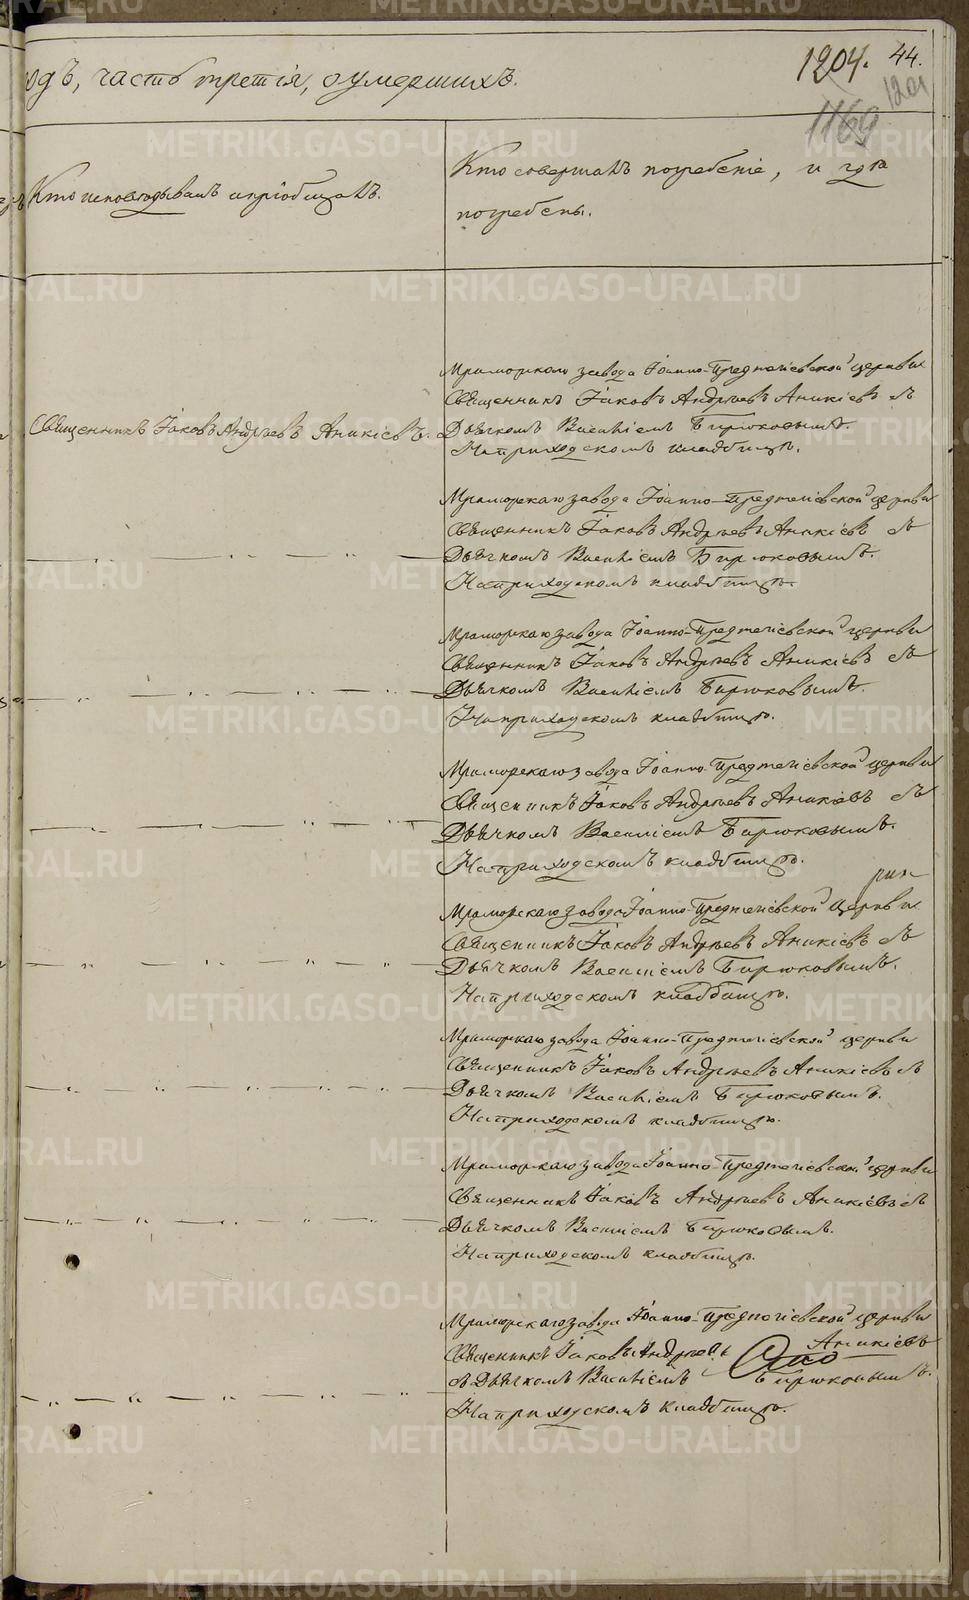 одъ, часть третія, о умершихъ.
1204. 44.
1201
1169
Кто исповѣдывалъ и пріобщалъ.
Кто совершалъ погребеніе, и гдѣ
погребены.
Мраморскаго завода Іоанно-Предтечіевской церкви
Священникъ Іаковъ Андреевъ Аникіевъ съ
Священникъ Іаковъ Андреевъ Аникіевъ.
Дьячкомъ Василіемъ Бирюковымъ.
На приходскомъ кладбищѣ.
Мраморскаго завода Іоанно-Предтечіевской церкви
Священникъ Іаковъ Андреевъ Аникіевъ съ
Дьячкомъ Василіемъ Бирюковымъ.
На приходскомъ кладбищѣ.
Мраморскаго завода Іоанно-Предтечіевской церкви
Священникъ Іаковъ Андреевъ Аникіевъ съ
Дьячкомъ Василіемъ Бирюковымъ.
На приходскомъ кладбищѣ.
Мраморскаго завода Іоанно-Предтечіевской церкви
Священникъ Іаковъ Андреевъ Аникіевъ съ
Дьячкомъ Василіемъ Бирюковымъ.
На приходскомъ кладбищѣ.
Мраморскаго завода Іоанно-Предтечіевской церкви
Священникъ Іаковъ Андреевъ Аникіевъ съ
Дьячкомъ Василіемъ Бирюковымъ.
На приходскомъ кладбищѣ.
Мраморскаго завода Іоанно-Предтечіевской церкви
Священникъ Іаковъ Андреевъ Аникіевъ съ
Дьячкомъ Василіемъ Бирюковымъ.
На приходскомъ кладбищѣ.
Мраморскаго завода Іоанно-Предтечіевской церкви
Священникъ Іаковъ Андреевъ Аникіевъ съ
Дьячкомъ Василіемъ Бирюковымъ.
На приходскомъ кладбищѣ.
Мраморскаго завода Іоанно-Предтечіевской церкви
Священникъ Іаковъ Андреевъ Аникіевъ
съ Дьячкомъ Василіемъ Бирюковымъ.
На приходскомъ кладбищѣ.
METRIKI.GASO-URAL.RU